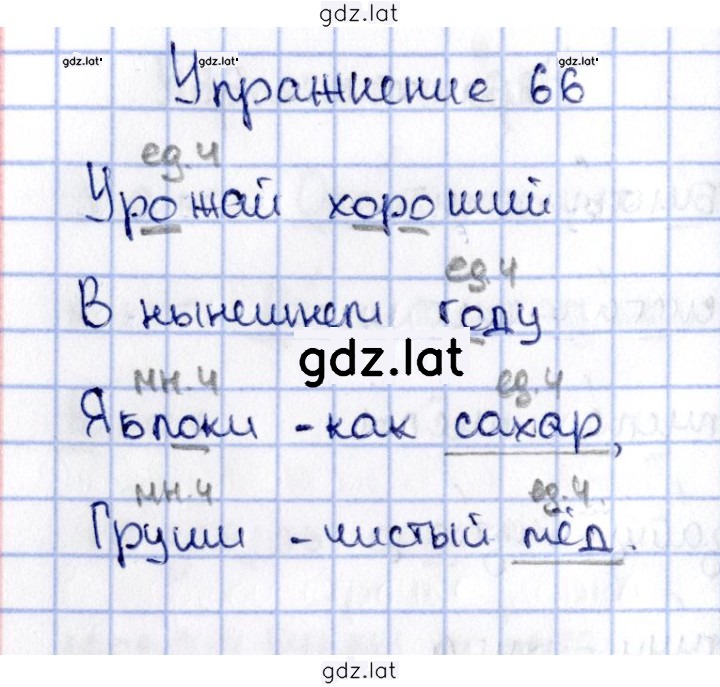 gdz.lat
gdz.lat gdz.lat
Упражнение 66
ед.ч
Урожай хороший
ед.ч
В нынешнем году
gdz.lat
мн.ч ед.ч
Яблоки - как сахар,
мн.ч ед.ч.
Груши - чистый мёд.
gdz.lat